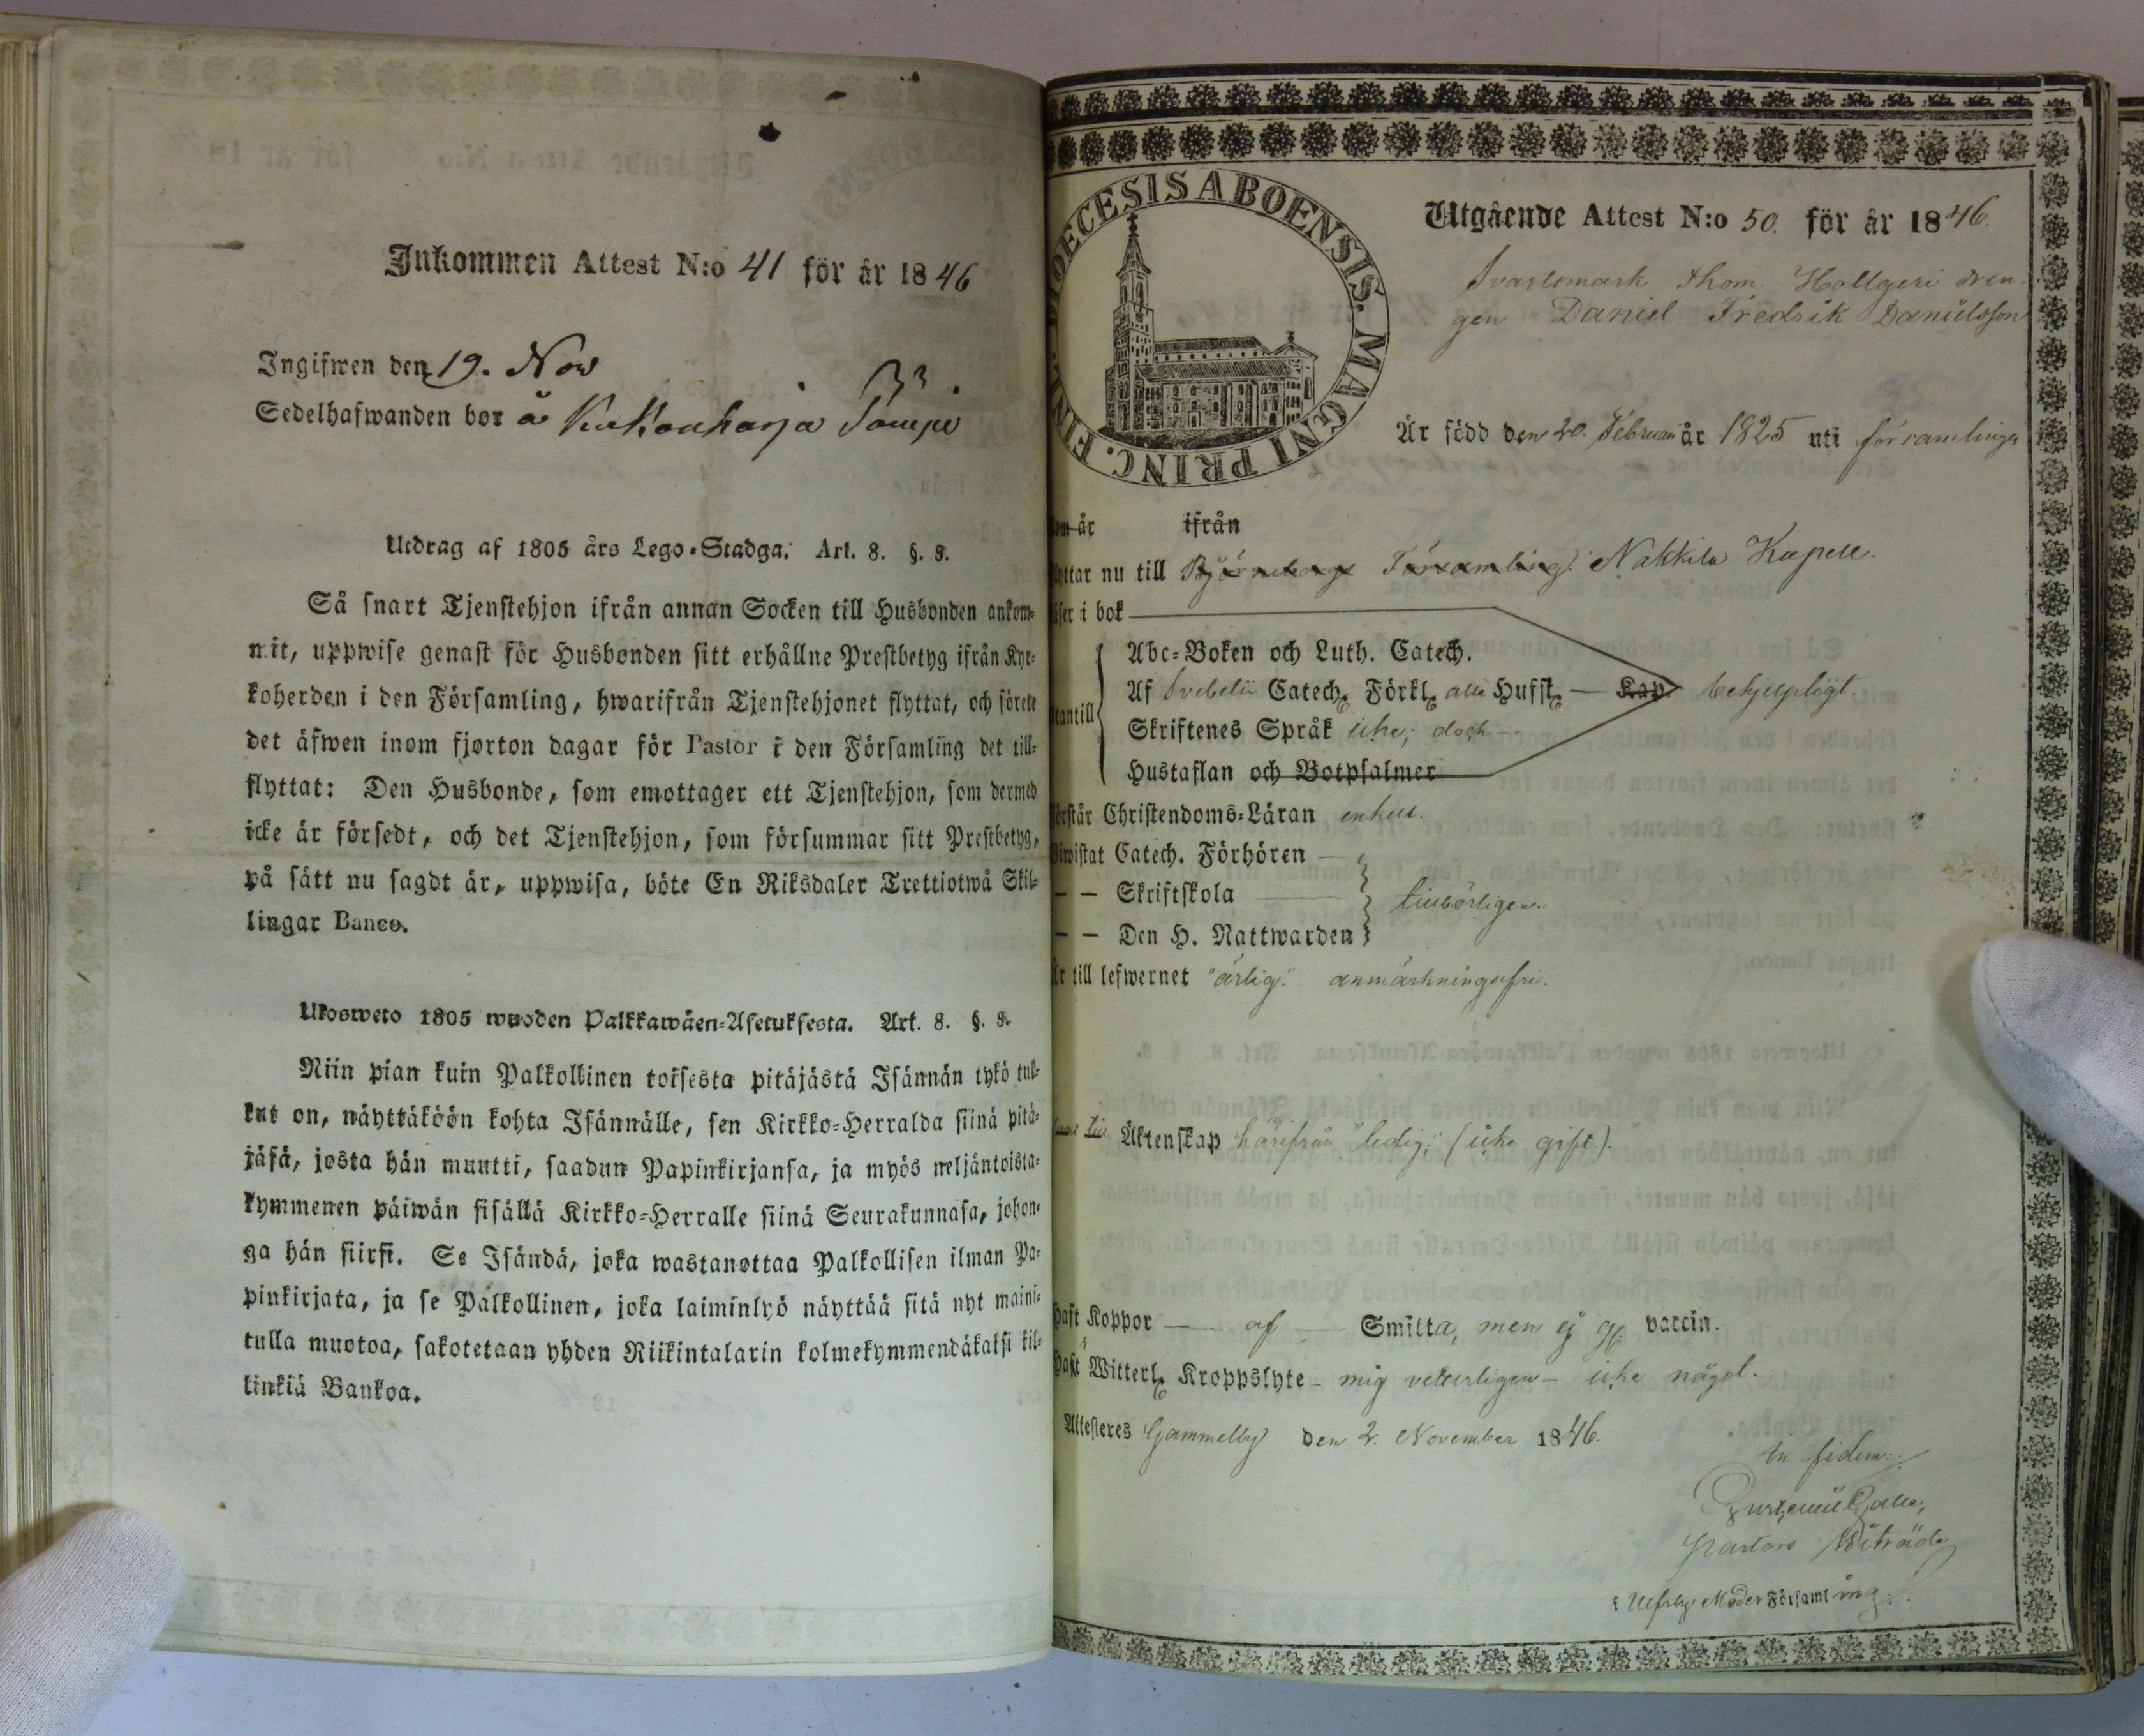 Inkommen Attest N:o 41 för år 1846
Ingifwen den 19. Nov
Sedelhafwanden bor å
Utdrag af 1805 års Lego-Stadga. Art. 8. §. 8.
Så snart Tjenstehjon ifrån annan Socken till Husbonden ankom-
mit, uppwise genast för Husbonden sitt erhållne Prestbetyg ifrån Kyr-
koherden i den Församling, hwarifrån Tjenstehjonet flyttat, och förete
det äfwen inom fjorton dagar för Pastor i den Församling det till-
flyttat: Den Husbonde, som emottager ett Tjenstehjon, som dermed
icke är försedt, och det Tjenstehjon, som försummar sitt Prestbetyg,
på sätt nu sagdt är, uppwisa, böte En Riksdaler Trettiotwå Skil-
lingar Banco.
Ulosweto 1805 wuoden Palkkawäen-Asetuksesta. Art. 8. §. 8.
Niin pian kuin Palkollinen toisesta pitäjästä Isännän tykö tul-
lut on, näyttäköön kohta Isännälle, sen Kirkko-Herralda siinä pitä-
jäsä, josta hän muutti, saadun Papinkirjansa, ja myös neljäntoista-
kymmenen päiwän sisällä Kirkko-Herralle siinä Seurakunnasa, johon-
ga hän siirsi. Se Isändä, joka wastanottaa Palkollisen ilman Pa-
pinkirjata, ja se Palkollinen, joka laiminlyö näyttää sitä nyt maini-
tulla muotoa, sakotetaan yhden Riikintalarin kolmekymmendäkaksi kil-
linkiä Bankoa.
DIOECESIS ABOENSIS. MAGNI PRINC. FINL.
Utgående Attest N:o 50. för år 1846.
Svartsmark Hollgeri dren-
gen Daniel Fredrik Danielsson
Är född den 20. Februari år 1825 uti församlingen
som år ifrån
flyttar nu till Björneborgs Församling. Nakkila Kapell.
läser i bok
Abc-Boken och Luth. Catech.
Af Svebelii Catech. Förkl. alla Hufst. — Kap. behjelpligt.
utantill
Skriftenes Språk icke, dock
Hustaflan och Botpsalmer
förstår Christendoms-Läran enkelt.
biwistat Catech. Förhören —
— — Skriftskola
— — Den H. Nattwarden
Är till lefwernet "ärlig." anmärkningsfri.
Äktenskap härifrån "ledig;" (icke gift).
Haft Koppor — af — Smitta, men ej gf vaccin.
Haft Witterl. Kroppslyte - mig veterligen - icke något.
Attesteres Gammelby den 2. November 1846.
In fidem.
Pastors
i Ulfsby Moder Församling.